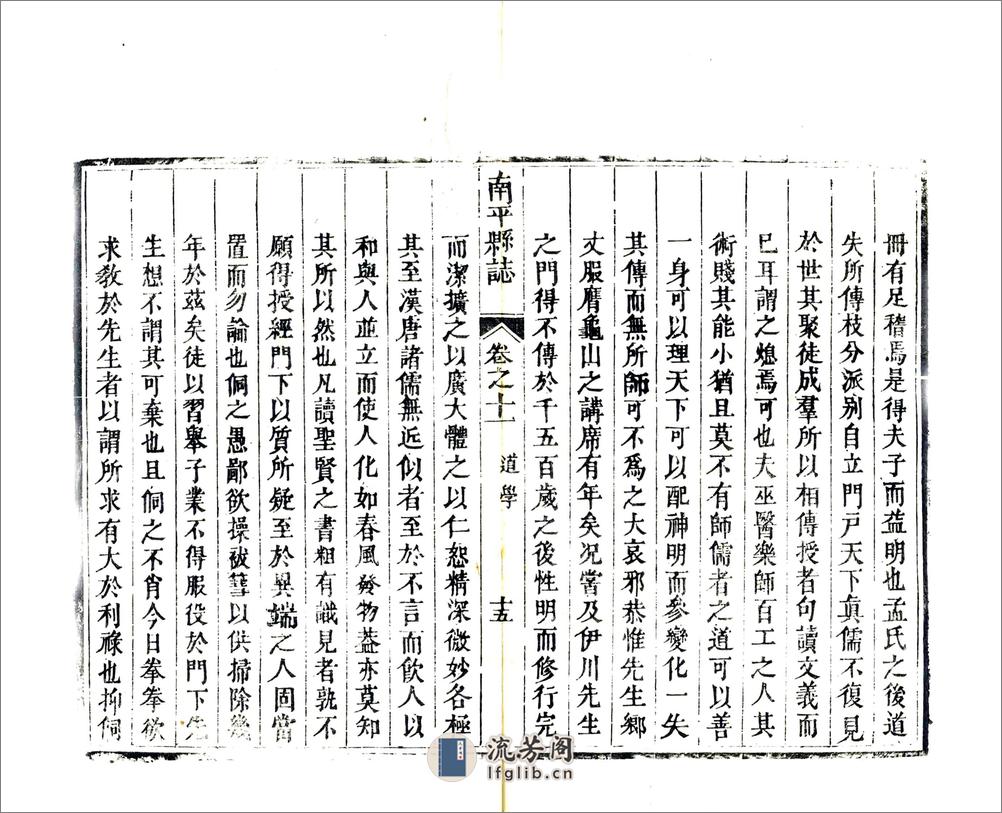 冊有足稽焉是得夫子而益明也孟氏之後道
失所傳枝分派别自立門戸天下眞儒不復見
於世其聚徒成羣所以相傳授者句讀文義而
已耳謂之熄焉可也夫巫醫樂師百工之人其
術賤其能小猶且莫不有師儒者之道可以善
一身可以理天下可以配神明而參變化一失
其傳而無所師可不爲之大哀邪恭惟先生鄉
丈服膺龜山之講席有年矣况嘗及伊川先生
之門得不傳於千五百歲之後性明而修行完
南平縣誌 卷之十一 道學 十五
而潔擴之以廣大體之以仁恕精深微妙各極
其至漢唐諸儒無近似者至於不言而飲人以
和與人並立而使人化如春風發物葢亦莫知
其所以然也凡讀聖賢之書粗有識見者孰不
願得授經門下以質所疑至於異端之人固當
置而勿論也侗之愚鄙欲操袯篲以供掃除幾
年於茲矣徒以習舉子業不得服役於門下先
生想不謂其可棄也且侗之不肖今日拳拳欲
求教於先生者以謂所求有大於利祿也抑侗
流芳阁
lfglib.cn